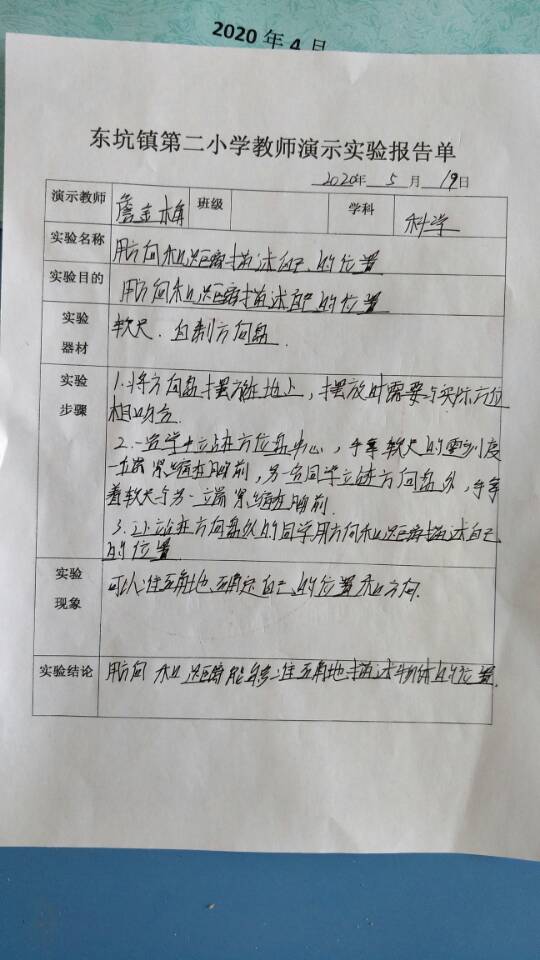 2020年4月
东坑镇第二小学教师演示实验报告单
2020年 5 月 19日
演示教师 詹金梅 班级 学科 科学
实验名称 用方向和距离描述自己的位置
实验目的 用方向和距离描述自己的位置
实验器材 软尺、自制方向盘
实验步骤 1.将方向盘摆放在地上,摆放时需要与实际方位
相吻合.
2.一名学生立站在方位盘中心,手拿软尺的零刻度
一端紧缩在胸前,另一名同学立站方向盘外,手拿
着软尺与另一端紧缩在胸前.
3.让站在方向盘外的同学用方向和距离描述自己
的位置
实验现象 可以准确地确定自己的位置和方向.
实验结论 用方向和距离能够准确地描述物体的位置.